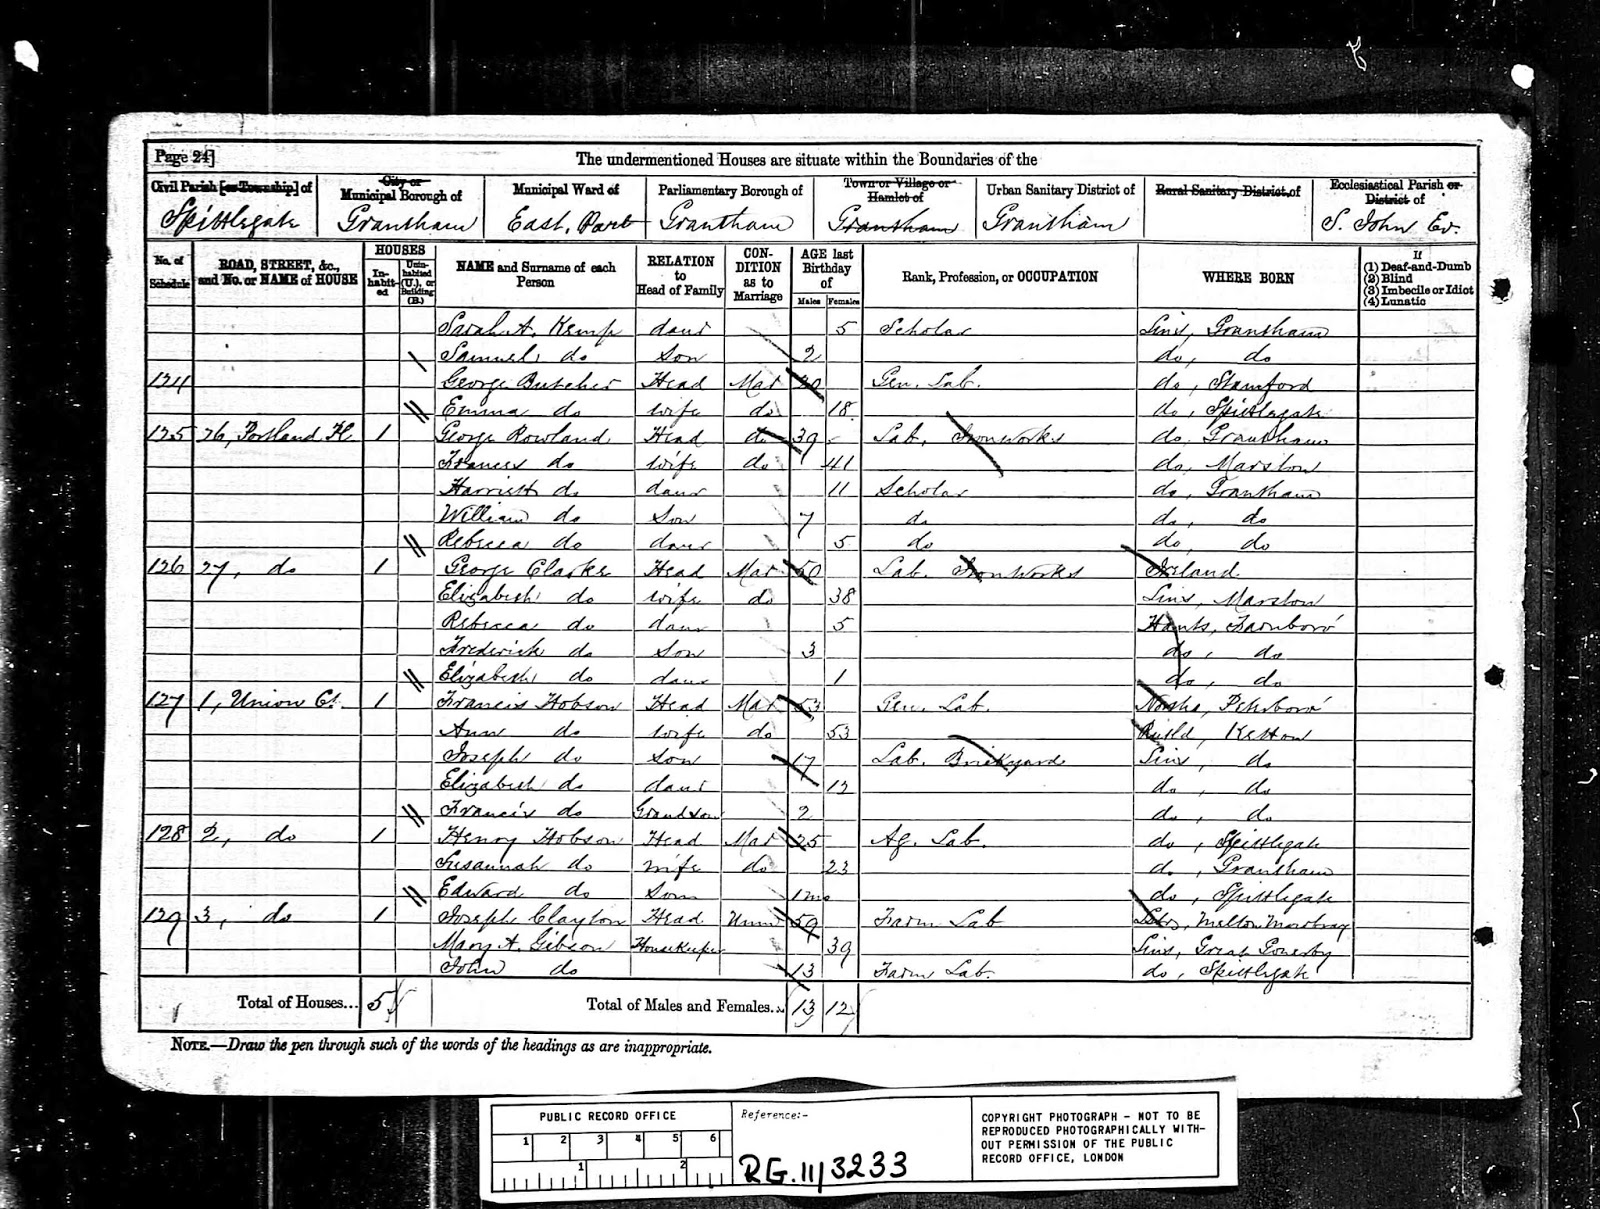 Page 24]
The undermentioned Houses are situate within the Boundaries of the
Civil Parish [or Township] of Spittlegate
City or Municipal Borough of Grantham
Municipal Ward of East, Part
Parliamentary Borough of Grantham
Town or Village or Hamlet of Grantham
Urban Sanitary District of Grantham
Rural Sanitary District of
Ecclesiastical Parish or District of S. John Ev.
No. of Schedule ROAD, STREET, &c., and No. or NAME of HOUSE HOUSES Inhabited Uninhabited (U.), or Building (B.) NAME and Surname of each Person RELATION to Head of Family CONDITION as to Marriage AGE last Birthday of Males Females Rank, Profession, or OCCUPATION WHERE BORN If (1) Deaf-and-Dumb (2) Blind (3) Imbecile or Idiot (4) Lunatic
Sarah A. Kemp daur 5 Scholar Linx, Grantham
Samuel do Son 2 do, do
124 George Butcher Head Mar 20 Gen. Lab. do, Stamford
Emma do wife do 18 do, Spittlegate
125 26, Portland Pl 1 George Rowland Head do 39 Lab. Ironworks do, Grantham
Frances do wife do 41 do, Marston
Harriett do daur 11 Scholar do, Grantham
William do Son 7 do do, do
Rebecca do daur 5 do do, do
126 27, do 1 George Clarke Head Mar 50 Lab. IronWorks Ireland
Elizabeth do wife do 38 Linx, Marston
Rebecca do daur 5 Hants, Farnboro'
Frederick do Son 3 do, do
Elizabeth do daur 1 do, do
127 1, Union Ct. 1 Francis Hobson Head Mar 53 Gen. Lab. Northa, Peterboro'
Ann do wife do 53 Rutld, Ketton
Joseph do son 17 Lab. Brickyard Linx, do
Elizabeth do daur 12 do, do
Francis do Grandson 2 do, do
128 2, do 1 Henry Hobson Head Mar 25 Ag. Lab. do, Spittlegate
Susannah do wife do 23 do, Grantham
Edward do Son 1mo do, Spittlegate
129 3, do 1 Joseph Clayton Head Unm 59 Farm Lab Melton Mowbray
Mary A. Gibson Housekeeper 39 Linx, Great Gonerby
John do 13 Farm Lab. do, Spittlegate
Total of Houses... 5 Total of Males and Females... 13 12
NOTE.—Draw the pen through such of the words of the headings as are inappropriate.
PUBLIC RECORD OFFICE
1 2 3 4 5 6
1 2
Reference:-
RG.11/3233
COPYRIGHT PHOTOGRAPH - NOT TO BE
REPRODUCED PHOTOGRAPHICALLY WITH-
OUT PERMISSION OF THE PUBLIC
RECORD OFFICE, LONDON